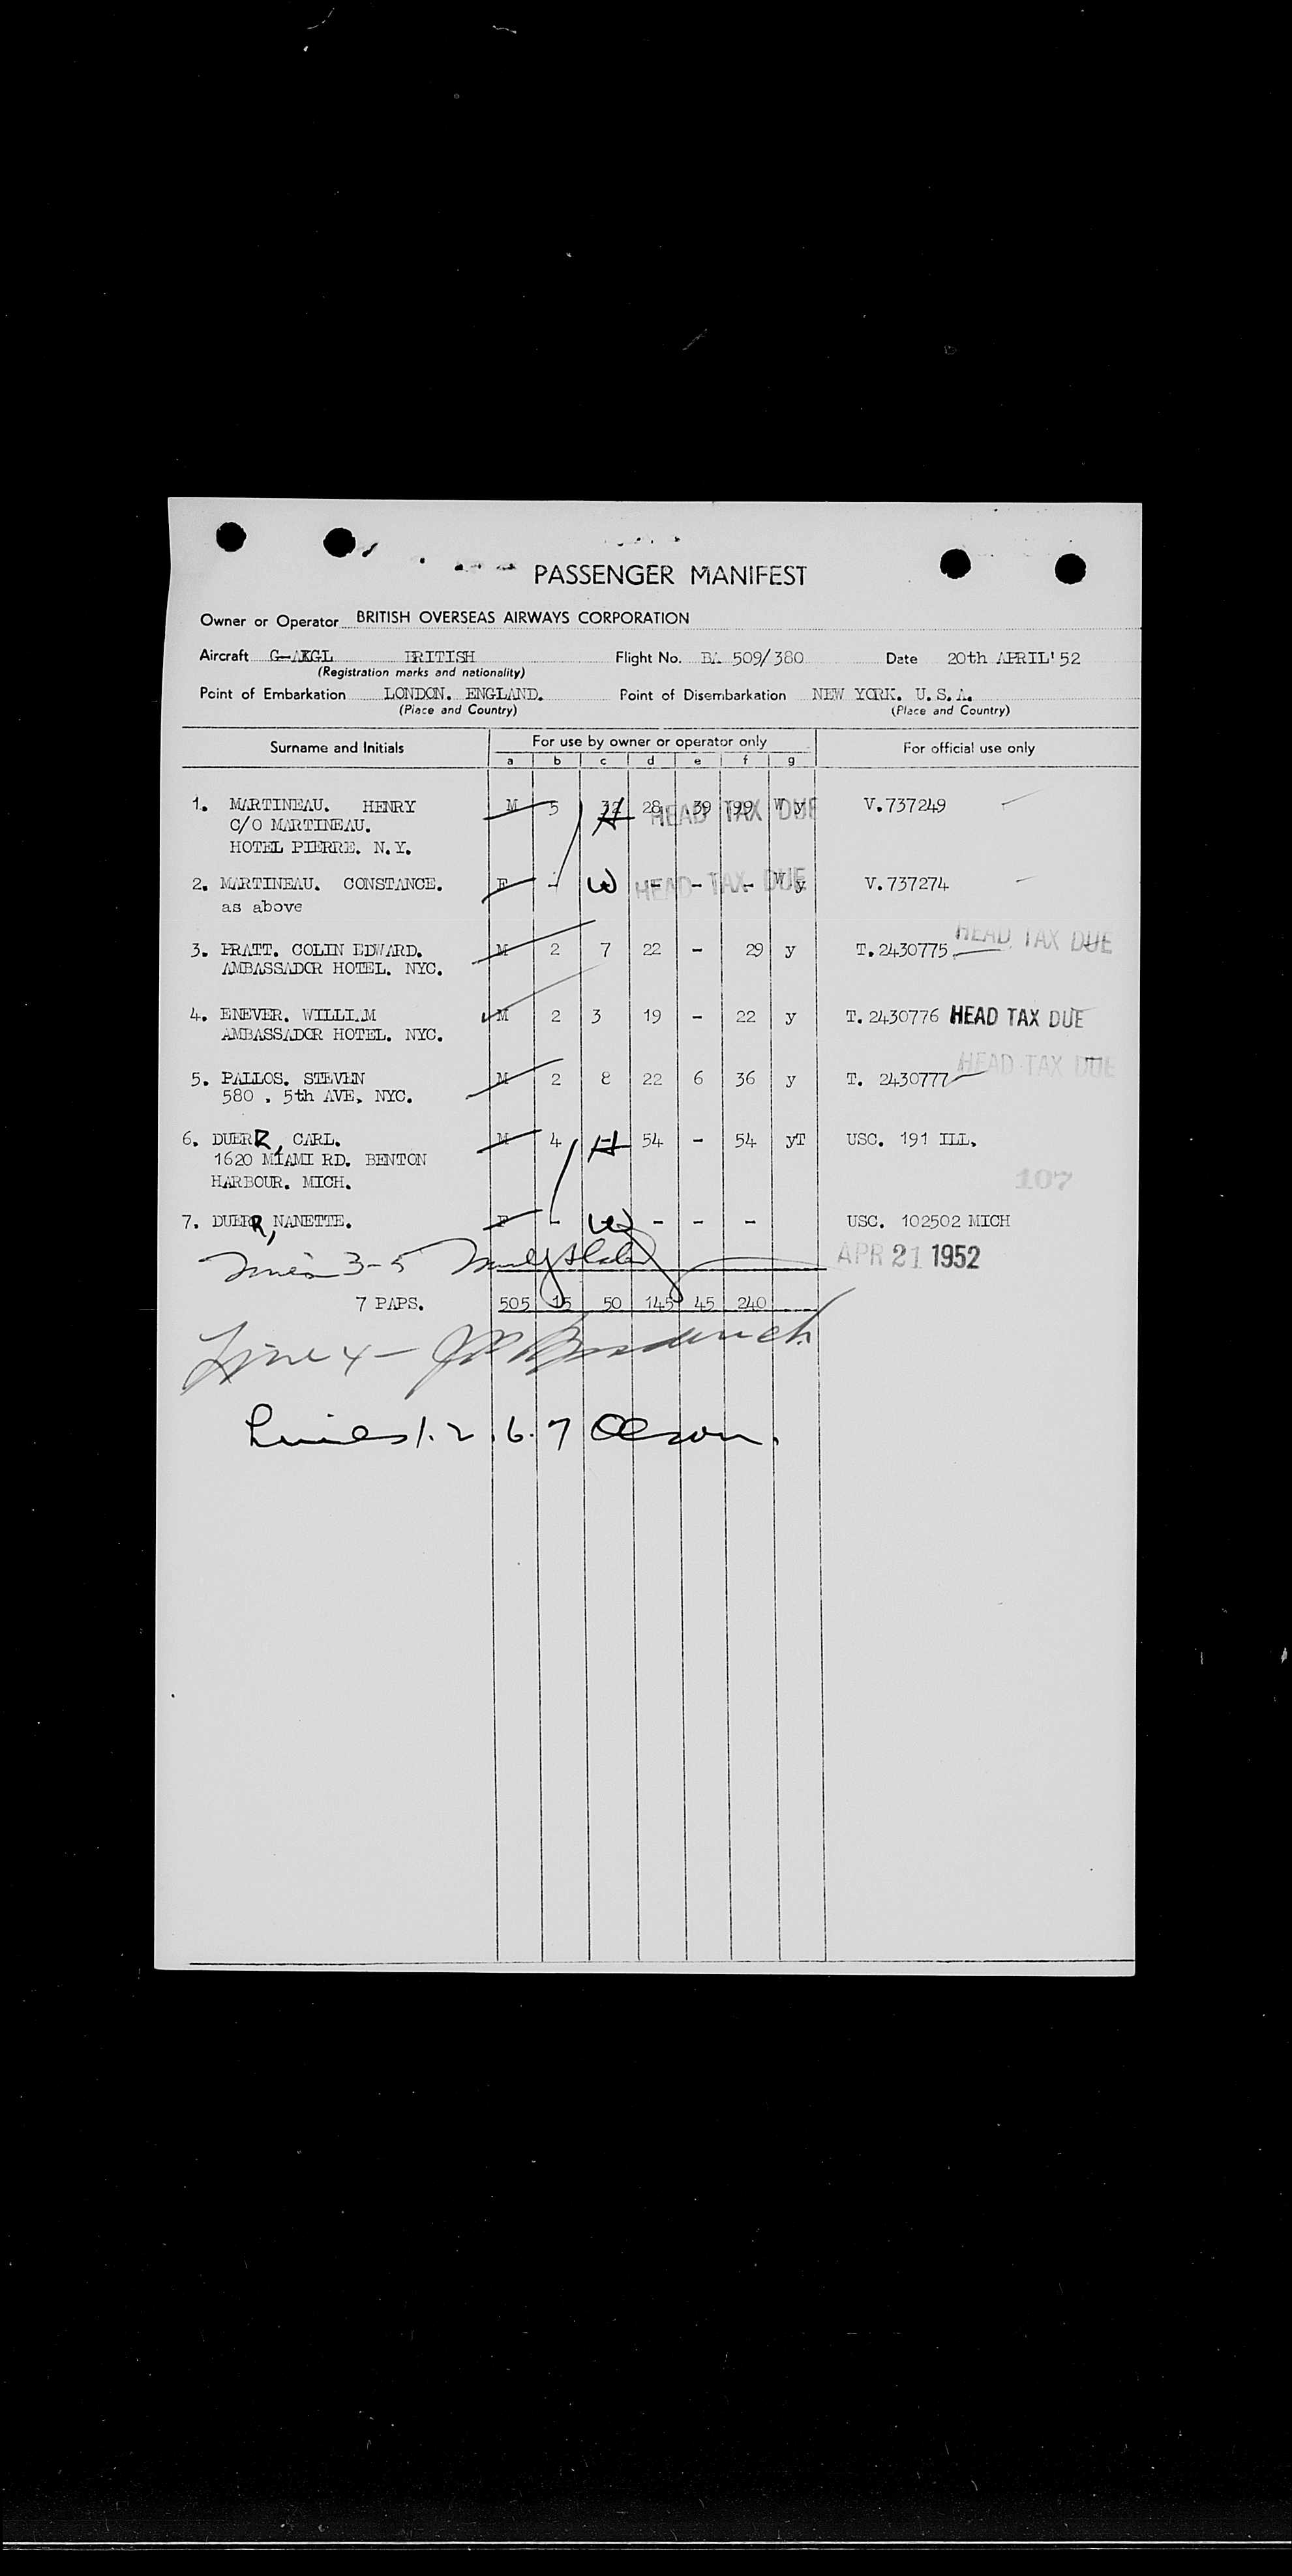 PASSENGER MANIFEST
Owner or Operator BRITISH OVERSEAS AIRWAYS CORPORATION
Aircraft G-AKGL BRITISH Flight No. BA 509/380 Date 20th APRIL' 52
(Registration marks and nationality)
Point of Embarkation LONDON. ENGLAND. Point of Disembarkation NEW YORK. U.S.A.
(Place and Country) (Place and Country)
Surname and Initials For use by owner or operator only For official use only
a b c d e f g
1. MARTINEAU. HENRY M 5 32 H 28 39 99 W y HEAD TAX DUE V.737249
C/O MARTINEAU.
HOTEL PIERRE. N.Y.
2. MARTINEAU. CONSTANCE. F - W - - - W y HEAD TAX DUE V.737274
as above
3. PRATT. COLIN EDWARD. M 2 7 22 - 29 y T.2430775 HEAD TAX DUE
AMBASSADOR HOTEL. NYC.
4. ENEVER. WILLIAM M 2 3 19 - 22 y T.2430776 HEAD TAX DUE
AMBASSADOR HOTEL. NYC.
5. PALLOS. STEVEN M 2 8 22 6 36 y T. 2430777 HEAD TAX DUE
580 , 5th AVE, NYC.
6. DUERR, CARL. M 4 H 54 - 54 yT USC. 191 ILL.
1620 MIAMI RD. BENTON
HARBOUR. MICH. 107
7. DUERR, NANETTE. F - W - - - USC. 102502 MICH
3-5 APR 21 1952
7 PAPS. 505 15 50 145 45 240
Line 4 - Broderick
Lines 1.2.6.7 Olson.